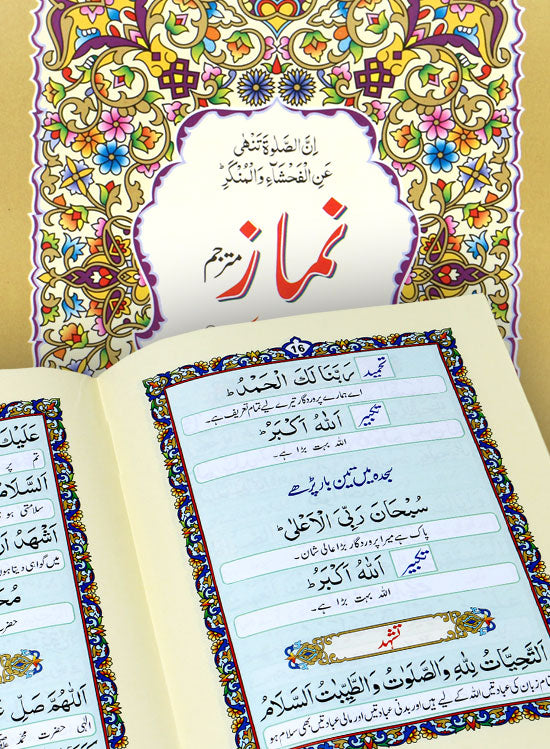 اِنَّ الصَّلٰوةَ تَنْهٰى
عَنِ الْفَحْشَآءِ وَالْمُنْكَرِ ؕ
نماز
مترجم
16
تحمید رَبَّنَا لَكَ الْحَمْدُ ؕ
اے ہمارے پروردگار تیرے لیے تمام تعریف ہے۔
تکبیر اَللّٰهُ اَكْبَرُ ؕ
اللہ بہت بڑا ہے۔
سجدہ میں تین بار پڑھے
سُبْحَانَ رَبِّیَ الْاَعْلٰی ؕ
پاک ہے میرا پروردگار بڑا عالی شان۔
تکبیر اَللّٰهُ اَكْبَرُ ؕ
اللہ بہت بڑا ہے۔
تشہد
اَلتَّحِیَّاتُ لِلّٰهِ وَالصَّلَوٰتُ وَالطَّیِّبٰتُ اَلسَّلَامُ
تمام زبان کی عبادتیں اللہ کے لیے ہیں اور بدنی عبادتیں اور مالی عبادتیں بھی سلام ہو
عَلَیْكَ
تم پر
اَلسَّلَامُ
سلامتی ہو
اَشْهَدُ اَنْ
میں گواہی دیتا ہوں
حضرت
اَللّٰهُمَّ صَلِّ
الٰہی حضرت محمد